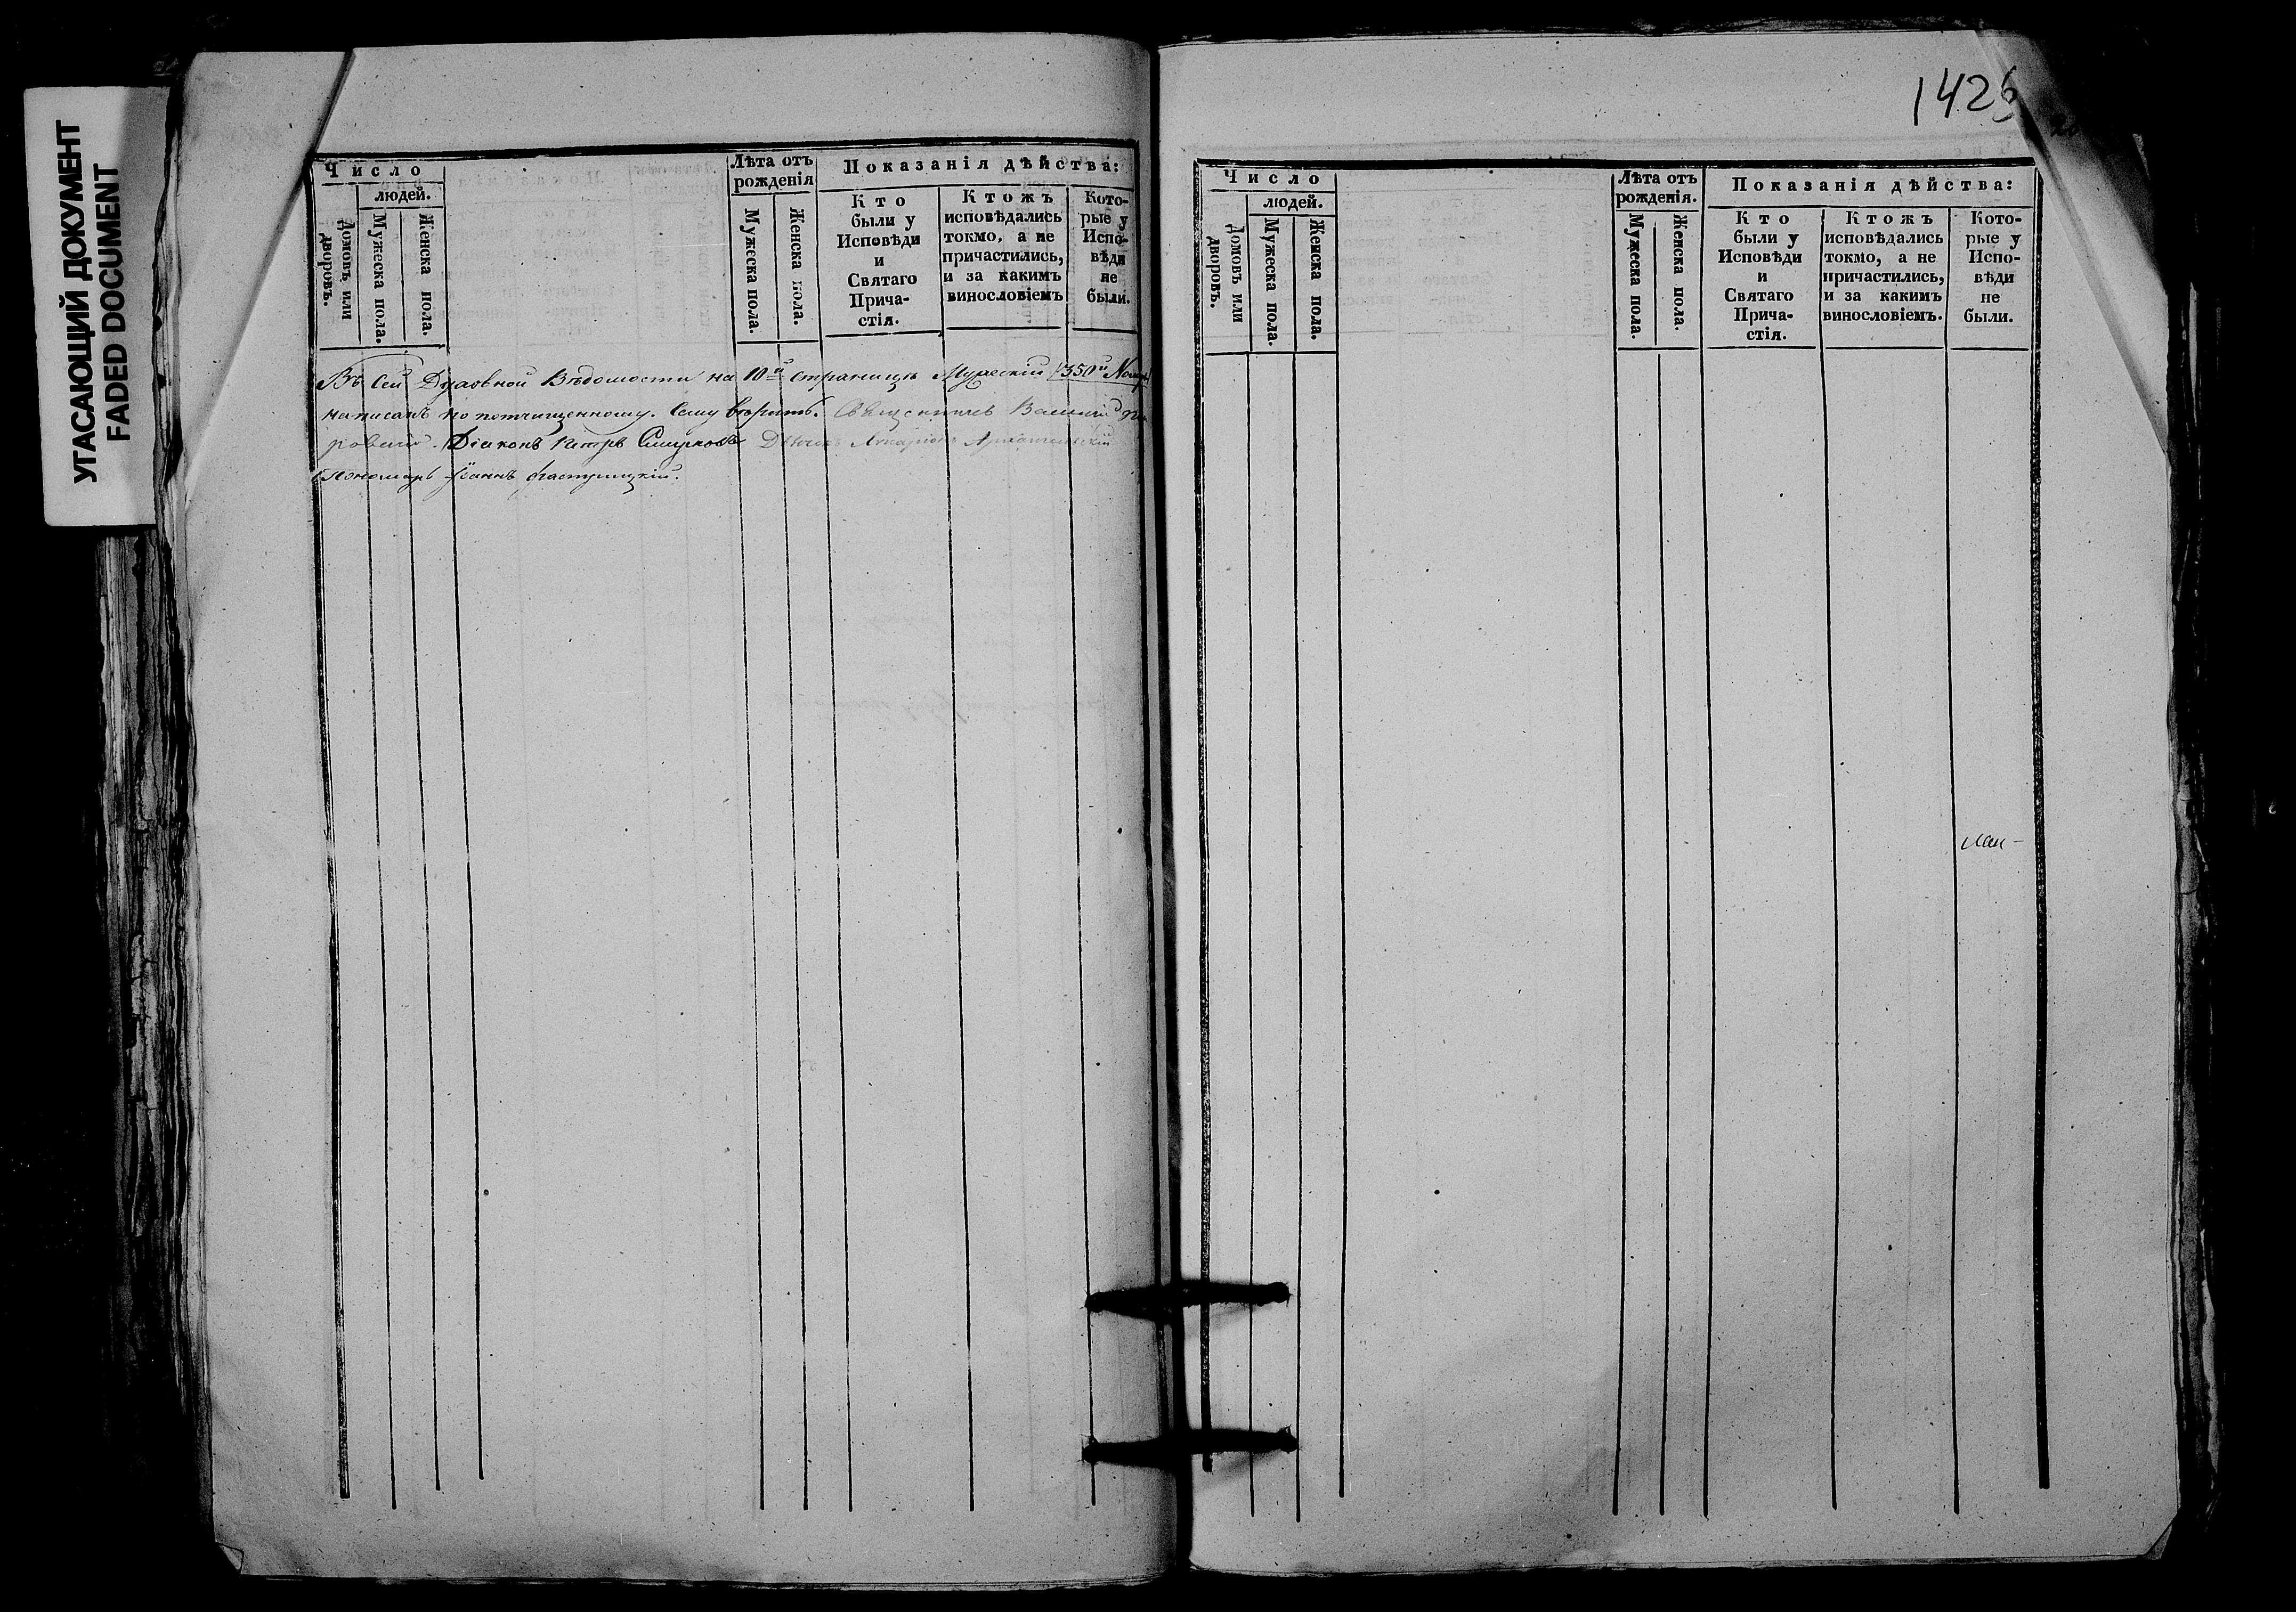 УГАСАЮЩИЙ ДОКУМЕНТ
FADED DOCUMENT
Число
людей.
Домовъ или дворовъ.
Мужеска пола.
Женска пола.
Лѣта отъ
рожденія
Мужеска пола.
Женска пола.
Показанія дѣйства:
Кто
были у
Исповѣди
и
Святаго
Прича-
стія.
Ктожъ
исповѣдались
токмо, а не
причастились,
и за какимъ
винословіемъ
Кото-
рые у
Испо-
вѣди
не
были.
Въ сей Духовной Вѣдомости на 10й страницѣ Мужескій 350й Номеръ
написанъ по потчищенному. Сему вѣрить. Священникъ Василій
Діаконъ Петръ Смирновъ Дьячекъ Архангельскій
Пономарь Іоаннъ
1426
Число
людей.
Домовъ или дворовъ.
Мужеска пола.
Женска пола.
Лѣта отъ
рожденія.
Мужеска пола.
Женска пола.
Показанія дѣйства:
Кто
были у
Исповѣди
и
Святаго
Прича-
стія.
Ктожъ
исповѣдались
токмо, а не
причастились,
и за какимъ
винословіемъ.
Кото-
рые у
Испо-
вѣди
не
были.